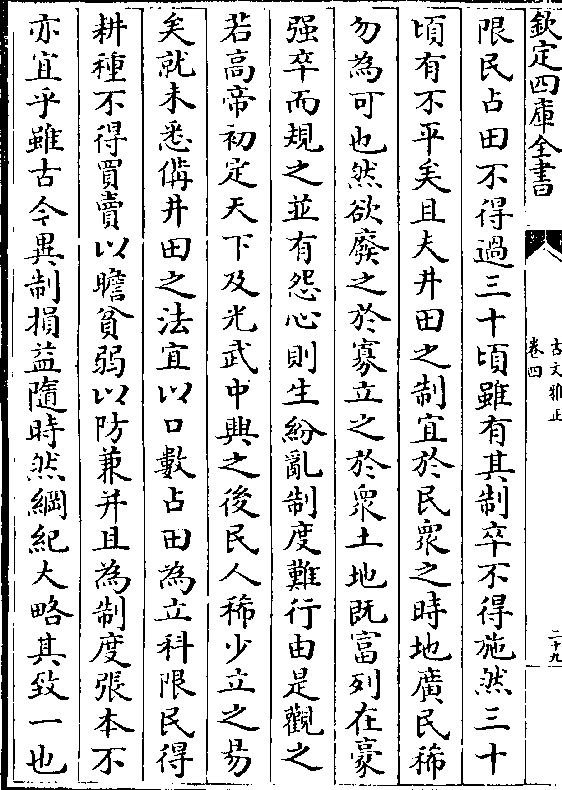 欽定四庫全書
古文雅正
卷四
二十九
限民占田不得過三十頃雖有其制卒不得施然三十
頃有不平矣且夫井田之制宜於民衆之時地廣民稀
勿為可也然欲廢之於寡立之於衆土地既富列在豪
强卒而規之並有怨心則生紛亂制度難行由是觀之
若高帝初定天下及光武中興之後民人稀少立之易
矣就未悉備井田之法宜以口數占田為立科限民得
耕種不得買賣以贍貧弱以防兼并且為制度張本不
亦宜乎雖古今異制損益隨時然綱紀大略其致一也